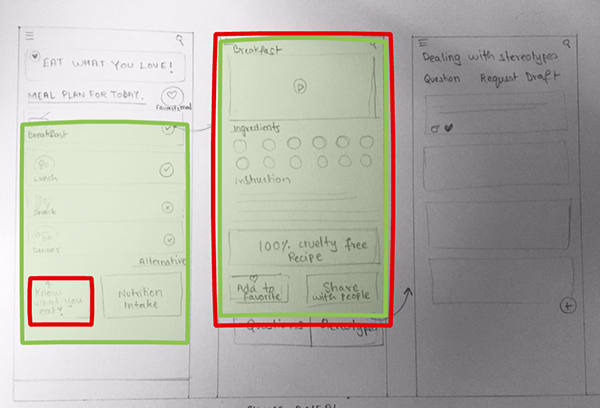 EAT WHAT YOU LOVE!
MEAL PLAN FOR TODAY.
Favourited
Breakfast
Lunch
Snack
Dinner
Alternative
Know
what you
eat?
Nutrition
Intake
Breakfast
Ingredients
Instruction
100% cruelty free
Recipe
Add to
Favorite
Share
with people
Questions
Stereotypes
Dealing with stereotypes
Question Request Draft